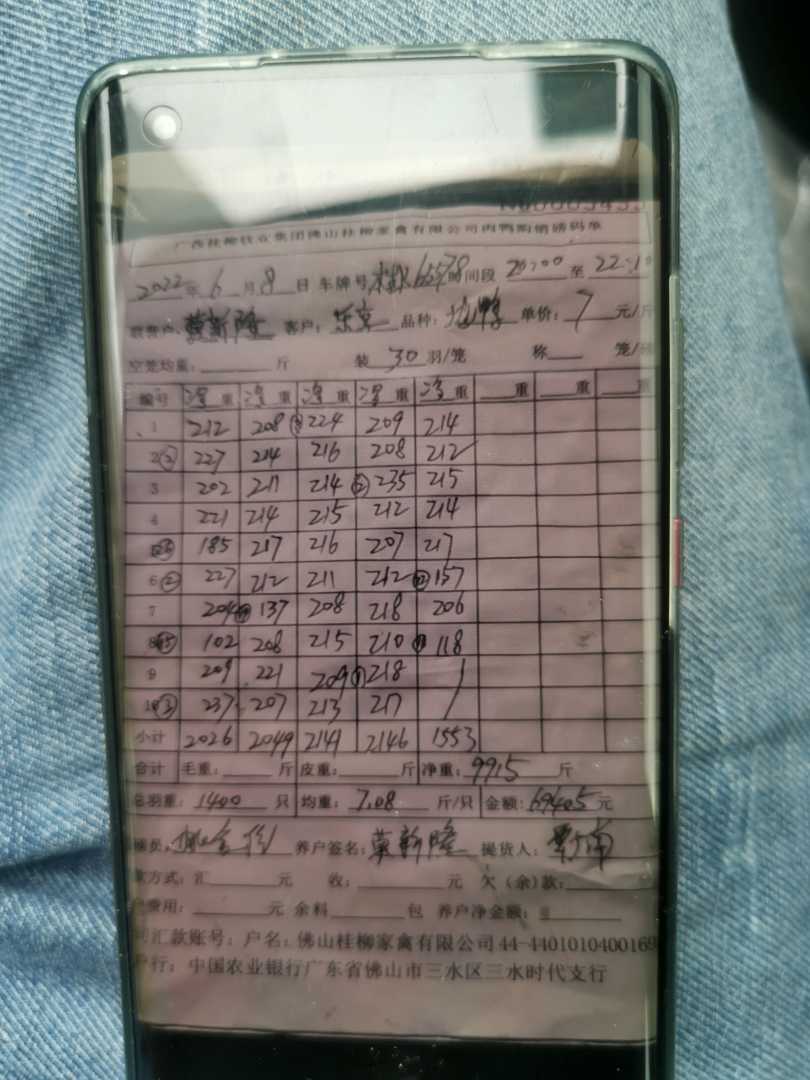 广西桂柳牧业集团佛山桂柳家禽有限公司肉鸭购销磅码单
2022年6月8日 车牌号 时间段 20:00 至 22:10
客户: 品种: 单价: 7 元/斤
空笼均重: 斤 装 30 羽/笼 称 笼/
编号 净重 净重 净重 净重 净重 重 重 重
1 212 208 224 209 214
2 ② 227 214 216 208 212
3 202 211 214 235 215
4 221 214 215 212 214
185 217 216 207 217
6 ② 227 212 211 212 157
7 204 137 208 218 206
102 208 215 210 118
9 209 221 209 218 /
③ 237 207 213 217 /
小计 2026 2049 2141 2146 1553
合计 毛重: 斤 皮重: 斤 净重: 9915 斤
总羽重: 1400 只 均重: 7.08 斤/只 金额: 69405 元
养户签名: 提货人:
款方式: 元 收: 元 欠(余)款:
费用: 元 余料 包 养户净金额:
汇款账号: 户名: 佛山桂柳家禽有限公司 44-4401010400169
户行: 中国农业银行广东省佛山市三水区三水时代支行